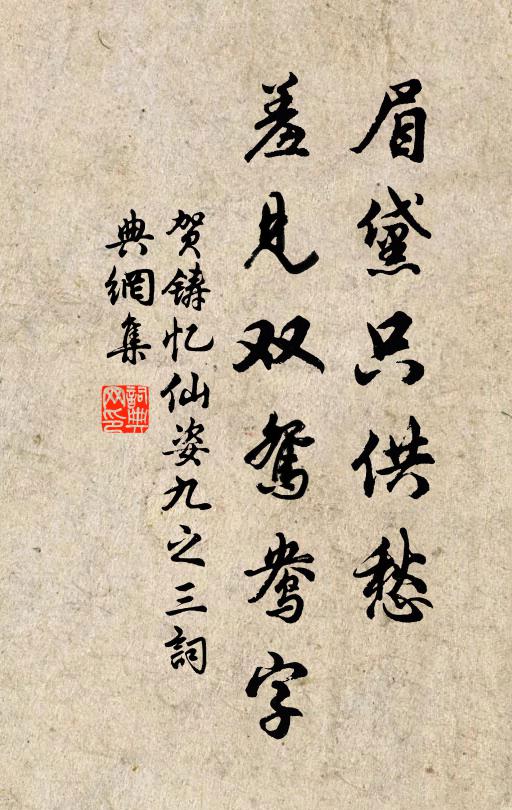 眉黛只供愁
羞见双鸳鸯字
贺铸忆仙姿九之三詞
典網集
詞典网印